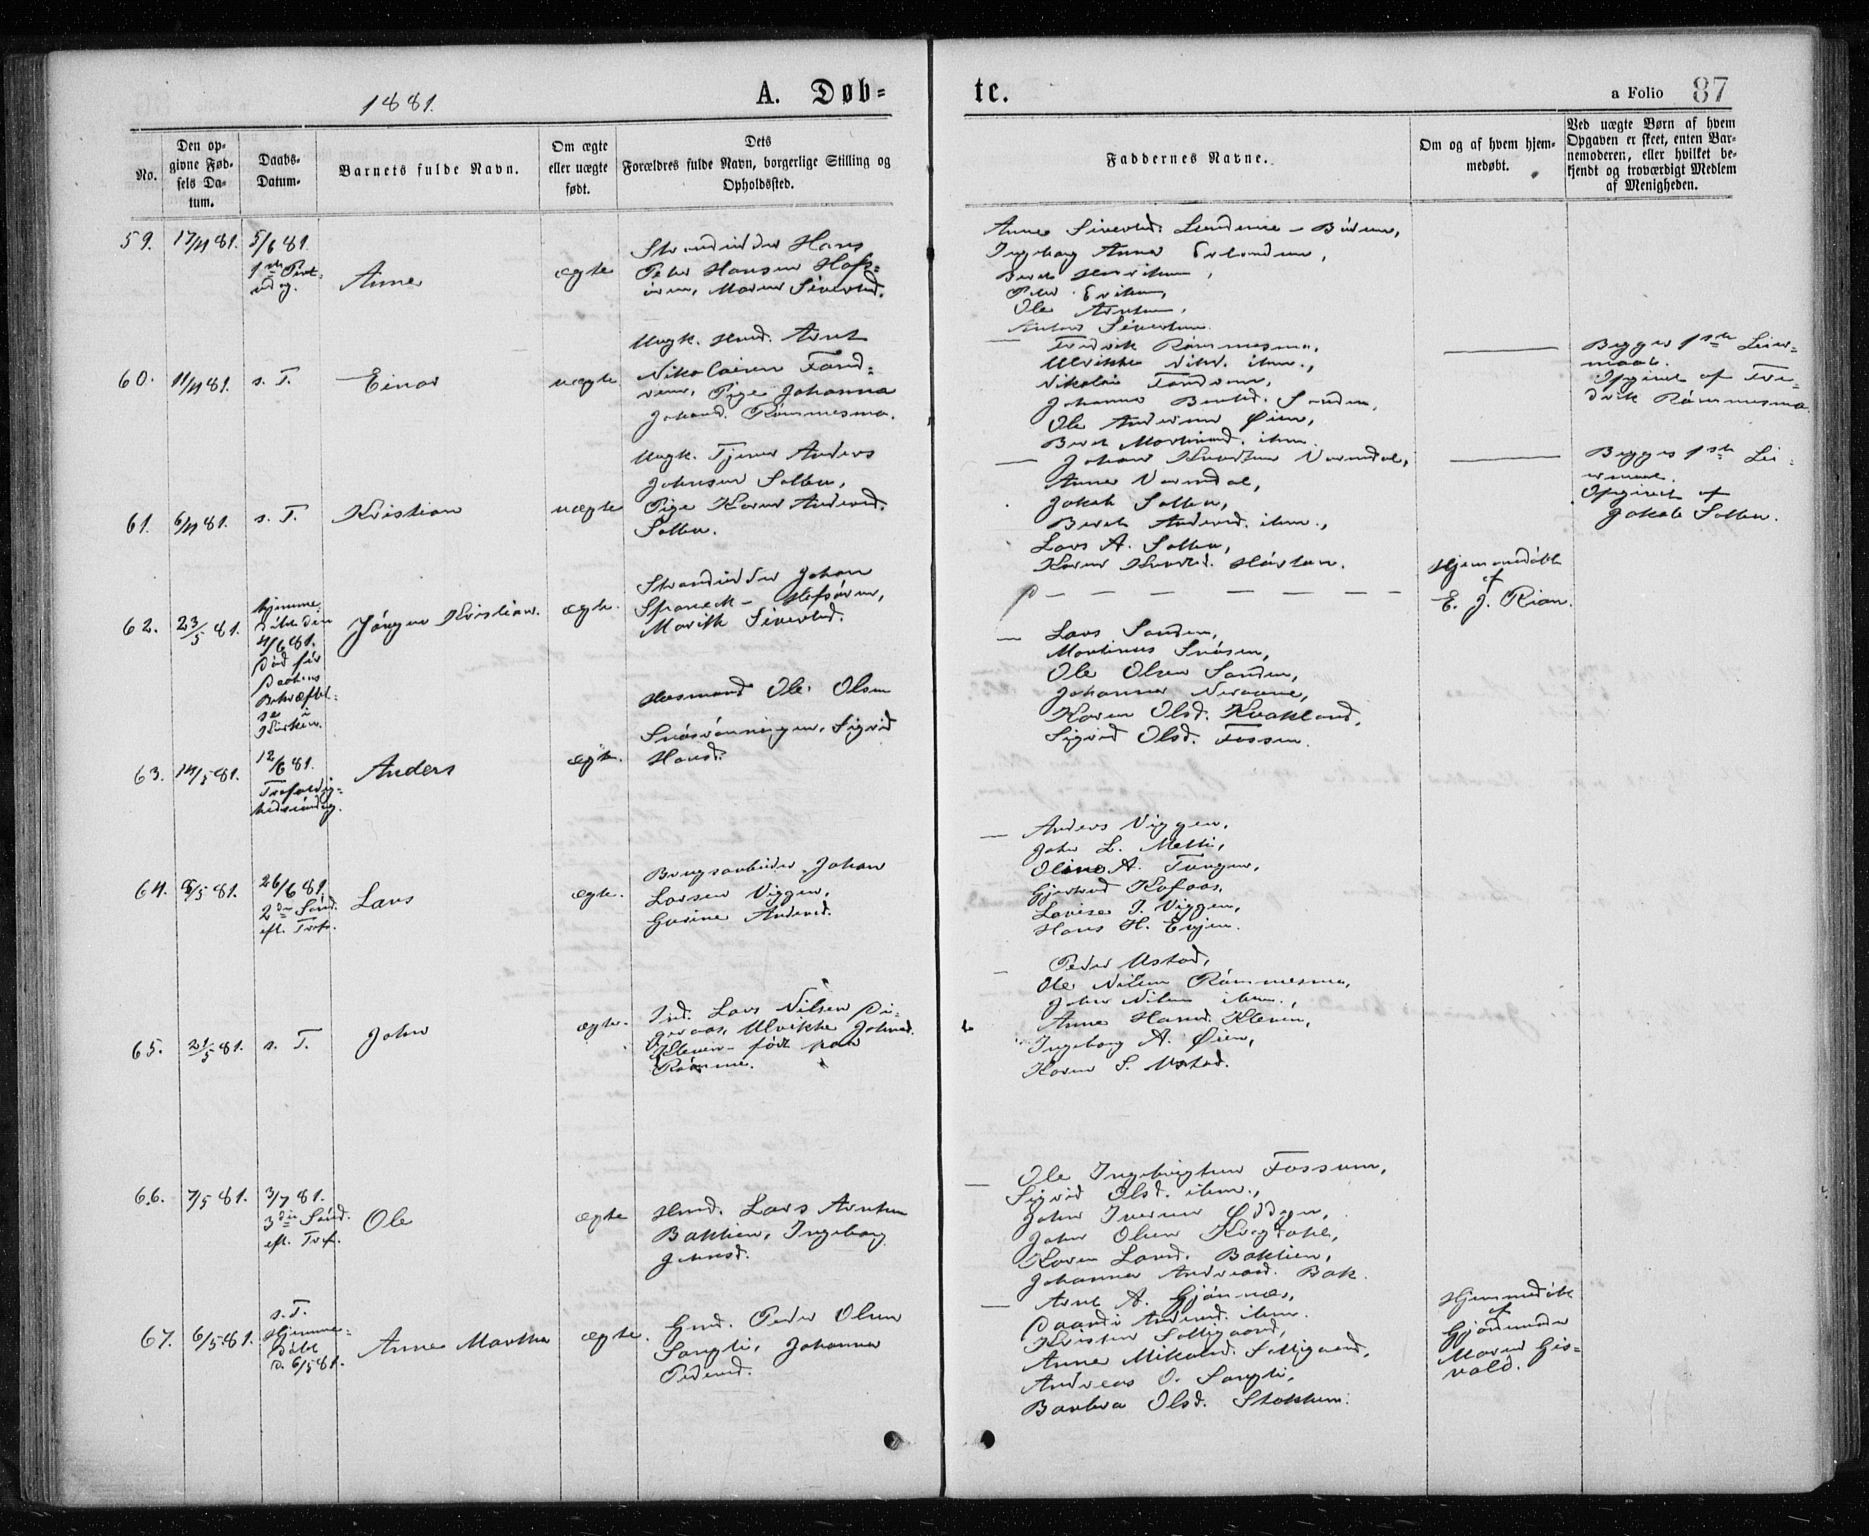 1881.
A. Døb=
te.
a Folio 87
No.
Den op-
givne Fød-
sels Da-
tum.
Daabs-
Datum.
Barnets fulde Navn.
Om ægte
eller uægte
født.
Dets
Forældres fulde Navn, borgerlige Stilling og
Opholdssted.
Faddernes Navne.
Om og af hvem hjem-
medøbt.
Ved uægte Børn af hvem
Opgaven er skeet, enten Bar-
nemoderen, eller hvilket be-
kjendt og troværdigt Medlem
af Menigheden.
59.
17/4 81.
5/6 81.
1ste
Anne
ægte
Strandsidder Hans
Peter Hansen Hofs=
øren, Maren Sivertsd.
Anne Sivertsd.
Ingeborg Anna Erlandsen,
Beret Henriksen,
Peter Eriksen,
Ole Arntsen,
Sivertsen.
60.
11/4 81.
s. T.
Einar
uægte
Ungk. Arnt
Nikolaisen Fand=
rem, Pige Johanna
Johansd. Rømmesmo.
Fredrik Rømmesmo,
Ulrikke Nilsd. ibm.,
Nikolai Fandrem,
Johanna Berntsd. Sanden,
Ole Andersen Øien,
Beret Martinsd. ibm.
Begges 1ste Leier=
maal.
Opgivet af Fre=
drik Rømmesmo.
61.
6/4 81.
s. T.
Kristian
uægte
Ungk. Tjener Anders
Johnsen Solbu,
Pige Karen Andersd.
Solbu.
Johan Knudsen Vormdal,
Anne Vormdal,
Jakob Solbu,
Beret Andersd. ibm.,
Lars A. Solbu,
Karen
Begges 1ste Lei=
ermaal.
Opgivet af
Jakob Solbu.
62.
23/5 81.
hjemme=
døbt den
4/6 81.
Død før
Daabens
Bekræftel=
se i
Kirken.
Jørgen Kristian.
ægte.
Strandsidder Johan
Spaneck - Hofsøren,
Marith Sivertsd.
Hjemmedøbt
af
E. J. Rian.
63.
14/5 81.
12/6 81.
Trefoldig=
hedssøndag.
Anders
ægte.
Husmand Ole Olsen
Snøsrønningen, Sigrid
Hansd.
Lars Sanden,
Martinus Snøsen,
Ole Olsen Sanden,
Johanna Neraune,
Karen Olsd. Kvakland,
Sigrid Olsd. Fossen.
64.
8/5 81.
26/6 81.
2den Sønd.
eft. Tref.
Lars
ægte.
Brugsarbeider Johan
Larsen Viggen,
Gurine Andersd.
Anders Viggen,
John L. Melli,
Oline A. Tungen,
Gjertrud Kofaas,
Lovise J. Viggen,
Hans H. Evjen.
65.
21/5 81.
s. T.
John
ægte.
Ind. Lars Nilsen Di=
geraas, Ulrikke Johnsd.
Kleven - født paa
Rømme.
Peder Ustad,
Ole Nilsen Rømmesmo,
John Nilsen ibm.,
Anne Hansd. Kleven,
Ingeborg A. Øien,
Karen S. Ustad.
66.
7/5 81.
3/7 81.
3die Sønd.
eft. Tref.
Ole
ægte
Husmd. Lars Arntsen
Baklien, Ingeborg
Johnsd.
Ole Ingebrigtsen Fossum,
Sigrid Olsd. ibm.,
John Iversen
John Olsen Krogdahl,
Karen Larsd. Baklien,
Johanna Andreasd. Bak.
67.
6/5 81.
s. T.
Hjemme=
døbt
d. 6/5 81.
Anne Martha
ægte.
Gmd. Peder Olsen
Songli, Johanna
Pedersd.
Arnt A. Gjønnes,
Paardi Andersd. ibm.
Kristen Solligaard,
Anne Mikalsd. Solligaard,
Andreas O. Songli,
Barbra Olsd. Stokken.
Hjemmedøbt
af
Gjordmoder
Maren Gis=
vold.